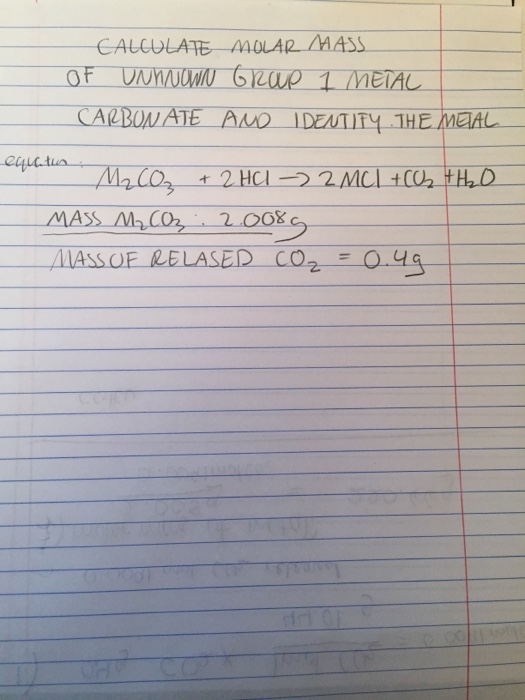 CALCULATE MOLAR MASS
OF UNKNOWN GROUP 1 METAL
CARBONATE AND IDENTITY THE METAL
equation:
M₂CO₃ + 2HCl → 2MCl + CO₂ + H₂O
MASS M₂CO₃: 2.008g
MASS OF RELASED CO₂ = 0.4g